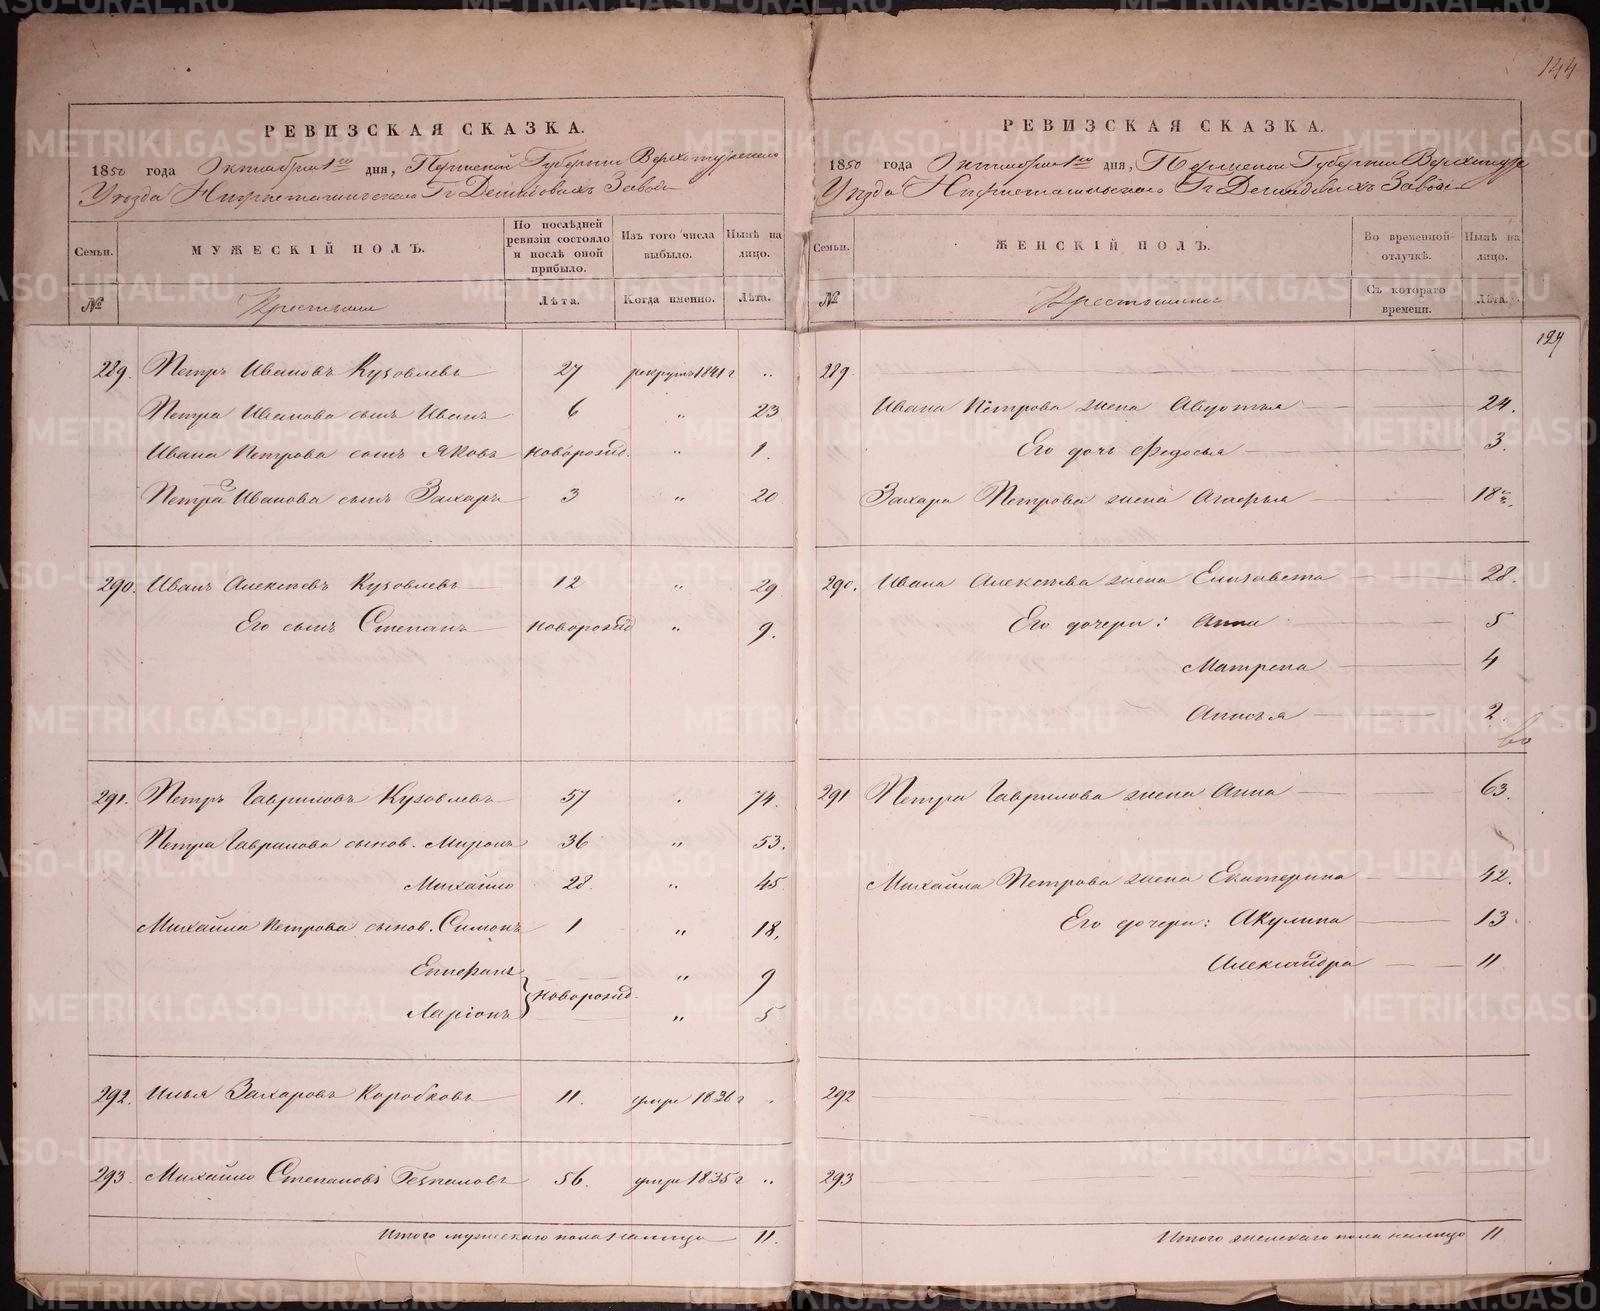 144
РЕВИЗСКАЯ СКАЗКА.
1850 года Октября 1го дня, Пермской Губернии Верхотурскаго
Уезда Нижнетагильскаго Гг Демидовыхъ Завода
Семьи. МУЖЕСКІЙ ПОЛЪ. По послѣдней ревизіи состояло и послѣ оной прибыло. Изъ того числа выбыло. Нынѣ на лицо.
№ Крестьяне Лѣта. Когда именно. Лѣта.
289. Петръ Ивановъ Кузовлевъ 27 рекрутъ 1841 г ..
Петра Иванова сынъ Иванъ 6 " 23
Ивана Петрова сынъ Яковъ новорожд. " 1.
Петра 2 Иванова сынъ Захаръ 3 " 20
290. Иванъ Алексѣевъ Кузовлевъ 12 " 29
Его сынъ Степанъ новорожд " 9.
291. Петръ Гавриловъ Кузовлевъ 57 . 74.
Петра Гаврилова сынов. Миронъ 36 " 53.
Михайло 28. " 45
Михайла Петрова сынов. Симонъ 1 " 18.
Епифанъ } новорожд. " 9
Ларіонъ " 5
292. Илья Захаровъ Коробковъ 11. умре 1836 г .
293. Михайло Степановъ 56. умре 1835 г ..
Итого мужескаго пола налицо 11.
РЕВИЗСКАЯ СКАЗКА.
1850 года Октября 1го дня, Пермской Губерніи Верхотурс
Уезда Нижнетагильскаго Гг Демидовыхъ Завода
Семьи. ЖЕНСКІЙ ПОЛЪ. Во временной отлучкѣ. Нынѣ на лицо.
№ Крестьянки Съ котораго времени. Лѣта.
129
289
Ивана Петрова жена Авдотья 24.
Его дочь Федосья 3.
Захара Петрова жена Агафья 18 ½.
290. Ивана Алексѣева жена Елизавета 28.
Его дочери: Анна 5
Матрена 4
Анисья 2.
291 Петра Гаврилова жена Анна 63.
Михайла Петрова жена Екатерина 42.
Его дочери: Акулина 13.
Александра 11
292
293
Итого женскаго пола налицо 11
METRIKI.GASO-URAL.RU